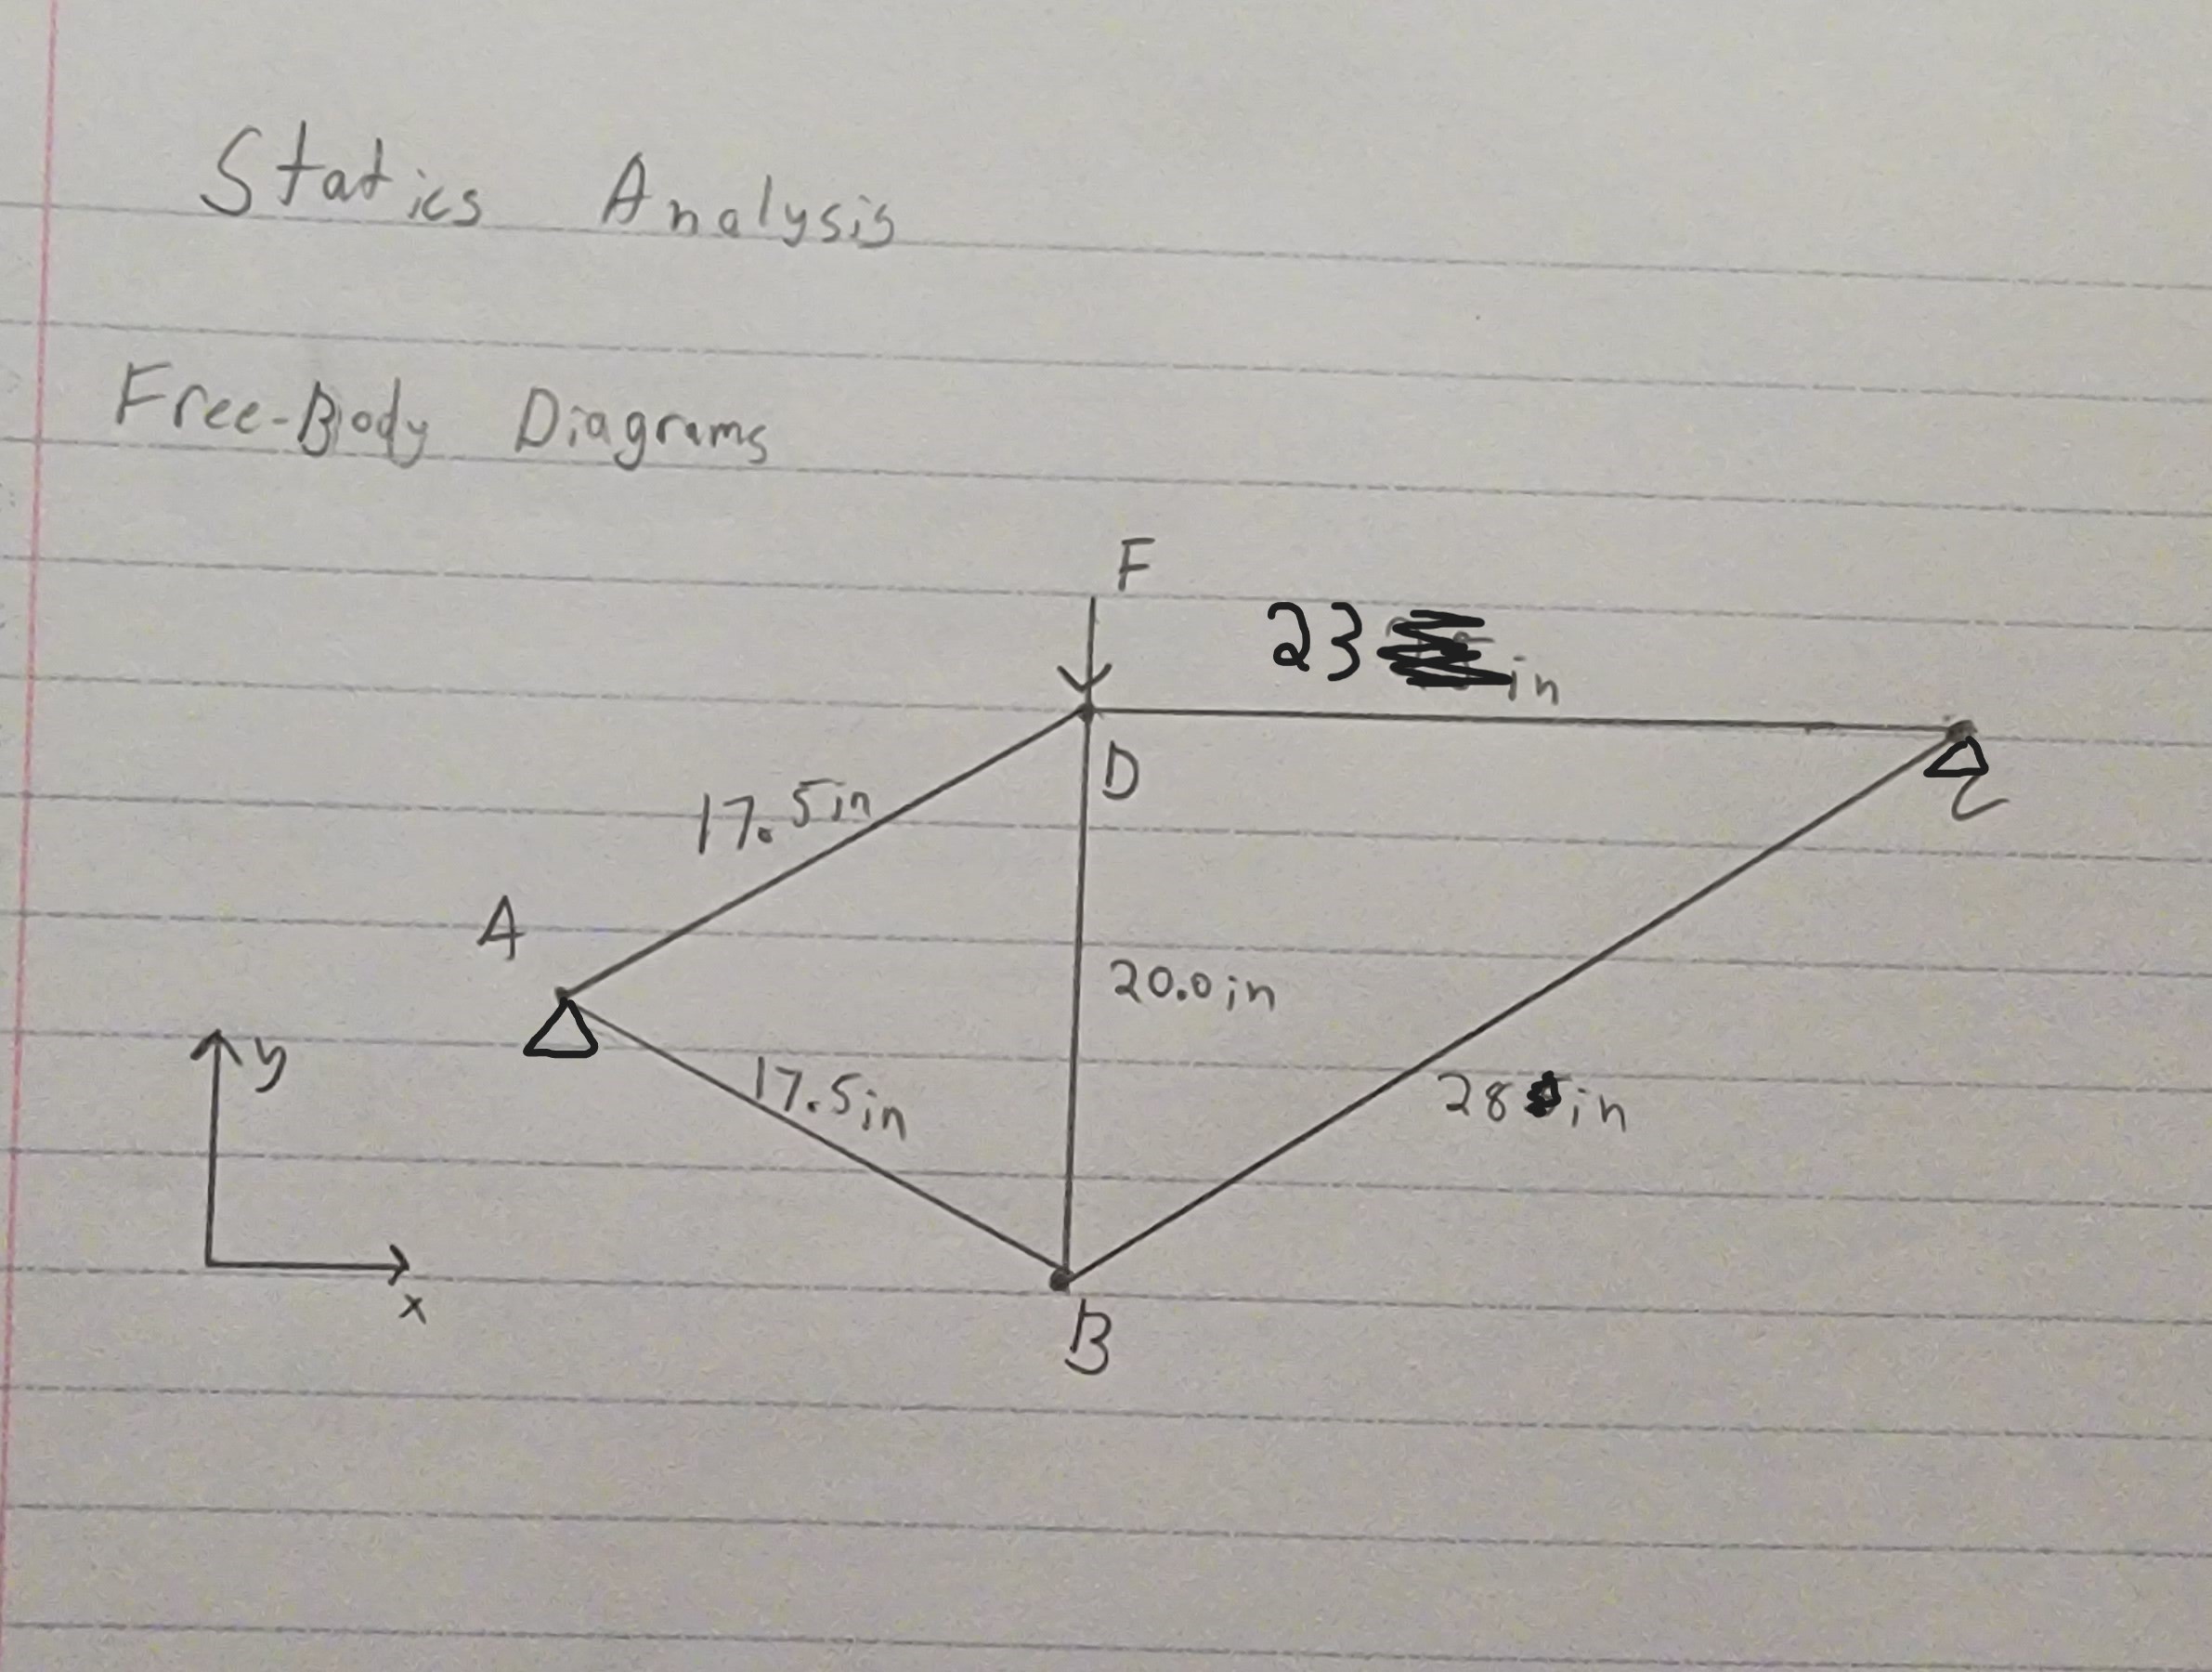 Statics Analysis
Free-Body Diagrams
F
23 in
D
17.5in
C
A
20.0in
y
17.5in
28 in
x
B